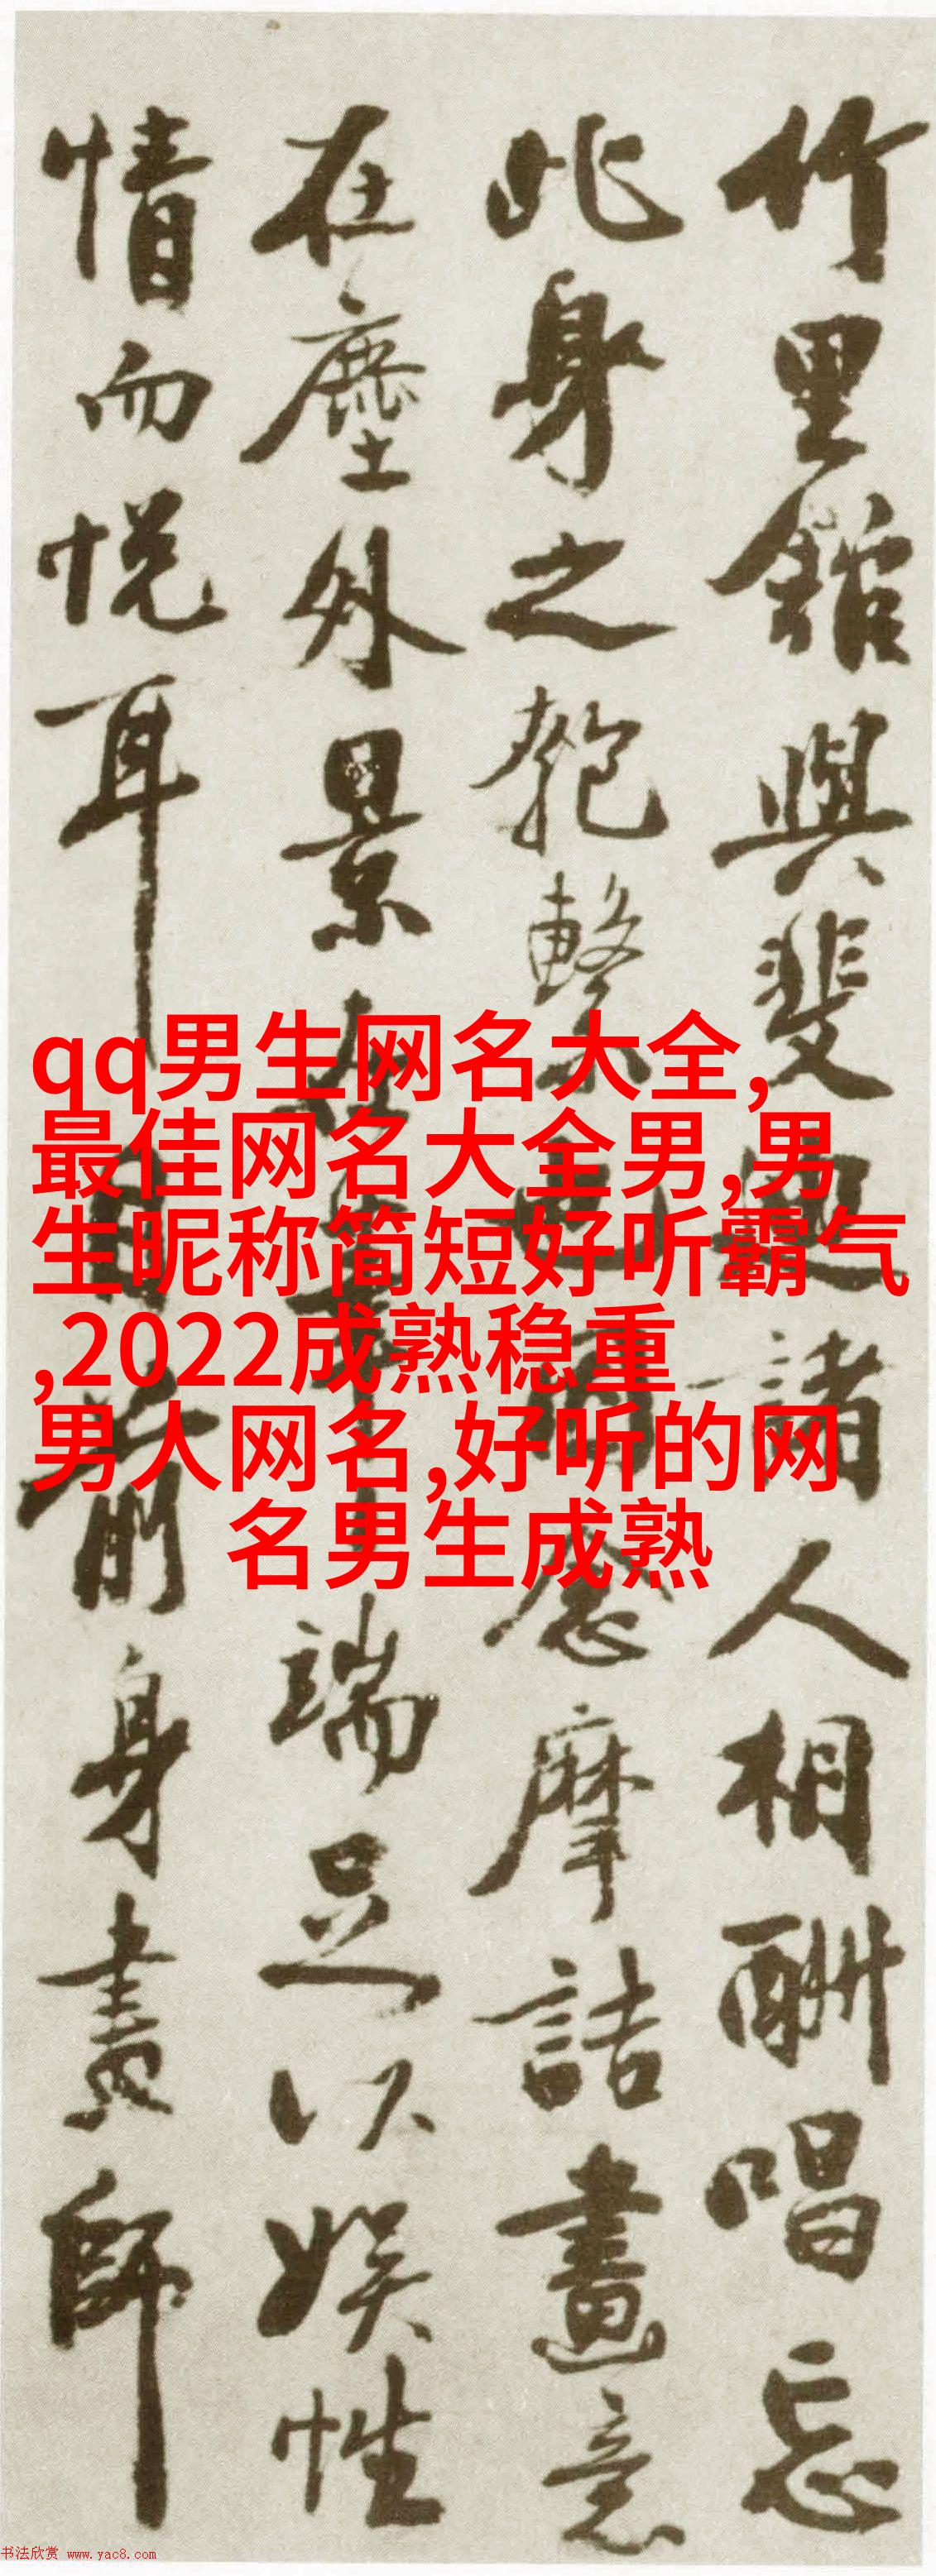 竹里館與斐迪諸人相酬唱忘
此身之匏繫也念摩詰畫意
在塵外景在筆端足以娛性
情而悅耳目前身畫師
qq男生网名大全,
最佳网名大全男,男
生昵称简短好听霸气
,2022成熟稳重
男人网名,好听的网
名男生成熟
书法欣赏 www.yac8.com